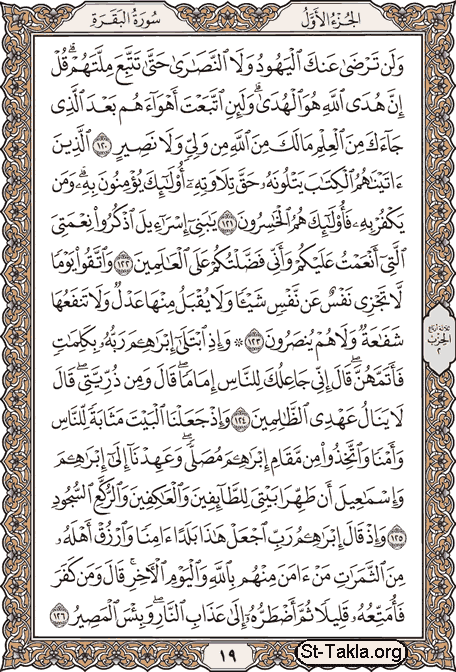 الجُزْءُ الأَوَّلُ
سُورَةُ البَقَرَةِ
وَلَن تَرْضَىٰ عَنكَ ٱلْيَهُودُ وَلَا ٱلنَّصَٰرَىٰ حَتَّىٰ تَتَّبِعَ مِلَّتَهُمْ ۗ قُلْ
إِنَّ هُدَى ٱللَّهِ هُوَ ٱلْهُدَىٰ ۗ وَلَئِنِ ٱتَّبَعْتَ أَهْوَآءَهُم بَعْدَ ٱلَّذِى
جَآءَكَ مِنَ ٱلْعِلْمِ مَا لَكَ مِنَ ٱللَّهِ مِن وَلِىٍّ وَلَا نَصِيرٍ ١٢٠ ٱلَّذِينَ
ءَاتَيْنَٰهُمُ ٱلْكِتَٰبَ يَتْلُونَهُۥ حَقَّ تِلَاوَتِهِۦٓ أُو۟لَٰٓئِكَ يُؤْمِنُونَ بِهِۦ ۗ وَمَن
يَكْفُرْ بِهِۦ فَأُو۟لَٰٓئِكَ هُمُ ٱلْخَٰسِرُونَ ١٢١ يَٰبَنِىٓ إِسْرَٰٓءِيلَ ٱذْكُرُوا۟ نِعْمَتِىَ
ٱلَّتِىٓ أَنْعَمْتُ عَلَيْكُمْ وَأَنِّى فَضَّلْتُكُمْ عَلَى ٱلْعَٰلَمِينَ ١٢٢ وَٱتَّقُوا۟ يَوْمًا
لَّا تَجْزِى نَفْسٌ عَن نَّفْسٍ شَيْـًٔا وَلَا يُقْبَلُ مِنْهَا عَدْلٌ وَلَا تَنفَعُهَا
شَفَٰعَةٌ وَلَا هُمْ يُنصَرُونَ ١٢٣ ۞ وَإِذِ ٱبْتَلَىٰٓ إِبْرَٰهِۦمَ رَبُّهُۥ بِكَلِمَٰتٍ
فَأَتَمَّهُنَّ ۖ قَالَ إِنِّى جَاعِلُكَ لِلنَّاسِ إِمَامًا ۖ قَالَ وَمِن ذُرِّيَّتِى ۖ قَالَ
لَا يَنَالُ عَهْدِى ٱلظَّٰلِمِينَ ١٢٤ وَإِذْ جَعَلْنَا ٱلْبَيْتَ مَثَابَةً لِّلنَّاسِ
وَأَمْنًا وَٱتَّخِذُوا۟ مِن مَّقَامِ إِبْرَٰهِۦمَ مُصَلًّى ۖ وَعَهِدْنَآ إِلَىٰٓ إِبْرَٰهِۦمَ
وَإِسْمَٰعِيلَ أَن طَهِّرَا بَيْتِىَ لِلطَّآئِفِينَ وَٱلْعَٰكِفِينَ وَٱلرُّكَّعِ ٱلسُّجُودِ
١٢٥ وَإِذْ قَالَ إِبْرَٰهِۦمُ رَبِّ ٱجْعَلْ هَٰذَا بَلَدًا ءَامِنًا وَٱرْزُقْ أَهْلَهُۥ
مِنَ ٱلثَّمَرَٰتِ مَنْ ءَامَنَ مِنْهُم بِٱللَّهِ وَٱلْيَوْمِ ٱلْءَاخِرِ ۖ قَالَ وَمَن كَفَرَ
فَأُمَتِّعُهُۥ قَلِيلًا ثُمَّ أَضْطَرُّهُۥٓ إِلَىٰ عَذَابِ ٱلنَّارِ ۖ وَبِئْسَ ٱلْمَصِيرُ ١٢٦
الحِزْب
٢
١٩
St-Takla.org